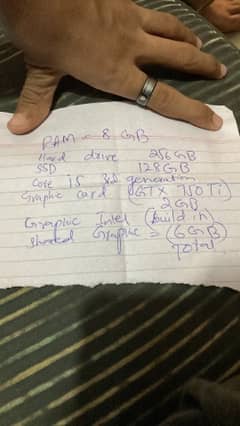 RAM = 8 GB
Hard drive 256 GB
SSD 128 GB
Core i5 3rd generation
Graphic card (GTX 750 Ti)
2 GB
Graphic Intel (build in)
shared Graphic = (6 GB)
Total